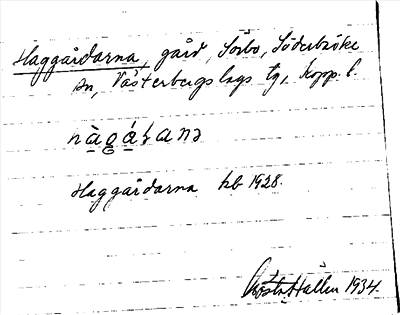 Haggårdarna, gård, Sörbo, Söderbärke
sn, Västerbergslags tg, Kopp. l.
Haggårdarna hb 1928.
Gösta Hallen 1934.